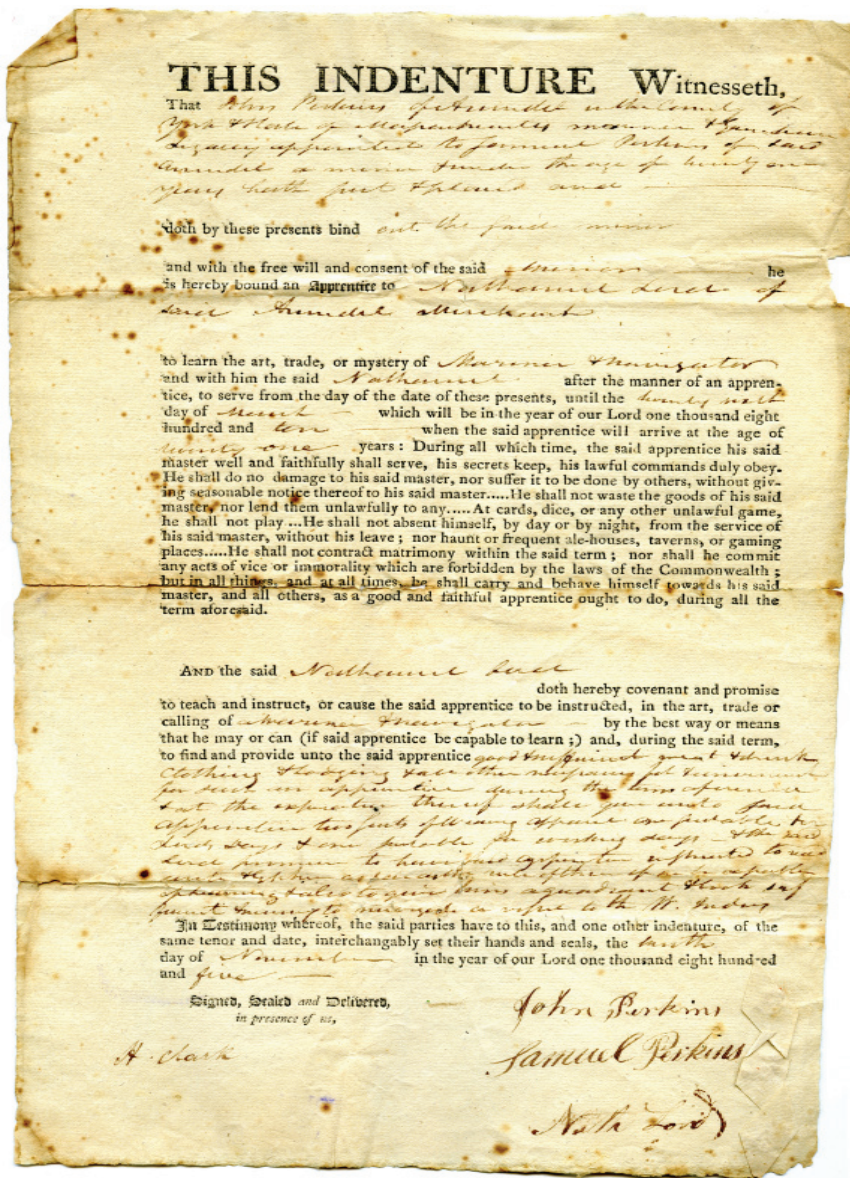 THIS INDENTURE Witnesseth,
That John Perkins of Arundel in the County of
York & State of Massachusetts mariner & Guardian
Legally appointed to Samuel Perkins of said
Arundel a minor & under the age of twenty one
years hath put & placed and
doth by these presents bind out the said minor
and with the free will and consent of the said minor he
is hereby bound an Apprentice to Nathaniel Lord of
said Arundel Merchant
to learn the art, trade, or mystery of Mariner & navigator
and with him the said Nathaniel after the manner of an appren-
tice, to serve from the day of the date of these presents, until the twenty
day of March which will be in the year of our Lord one thousand eight
hundred and ten when the said apprentice will arrive at the age of
twenty one years: During all which time, the said apprentice his said
master well and faithfully shall serve, his secrets keep, his lawful commands duly obey.
He shall do no damage to his said master, nor suffer it to be done by others, without giv-
ing seasonable notice thereof to his said master.....He shall not waste the goods of his said
master, nor lend them unlawfully to any.....At cards, dice, or any other unlawful game,
he shall not play ...He shall not absent himself, by day or by night, from the service of
his said master, without his leave; nor haunt or frequent ale-houses, taverns, or gaming
places.....He shall not contract matrimony within the said term; nor shall he commit
any acts of vice or immorality which are forbidden by the laws of the Commonwealth;
but in all things, and at all times, he shall carry and behave himself towards his said
master, and all others, as a good and faithful apprentice ought to do, during all the
term aforesaid.
AND the said Nathaniel Lord
doth hereby covenant and promise
to teach and instruct, or cause the said apprentice to be instructed, in the art, trade or
calling of Mariner & navigator by the best way or means
that he may or can (if said apprentice be capable to learn;) and, during the said term,
to find and provide unto the said apprentice good & sufficient meat & drink
Clothing & lodging & all other necessary
for such an apprentice during the time aforesaid
& at the expiration thereof shall give unto said
apprentice two suits of wearing apparel one suitable for
Lords days & one suitable for working days & the said
Lord promises to have said apprentice instructed to read
write &
of learning & also to give him a quadrant & book
to navigate a vessel to the W. Indies
In Testimony whereof, the said parties have to this, and one other indenture, of the
same tenor and date, interchangably set their hands and seals, the tenth
day of November in the year of our Lord one thousand eight hundred
and five
Signed, Sealed and Delivered,
in presence of us,
John Perkins
Samuel Perkins
H. Clark
Nath Lord